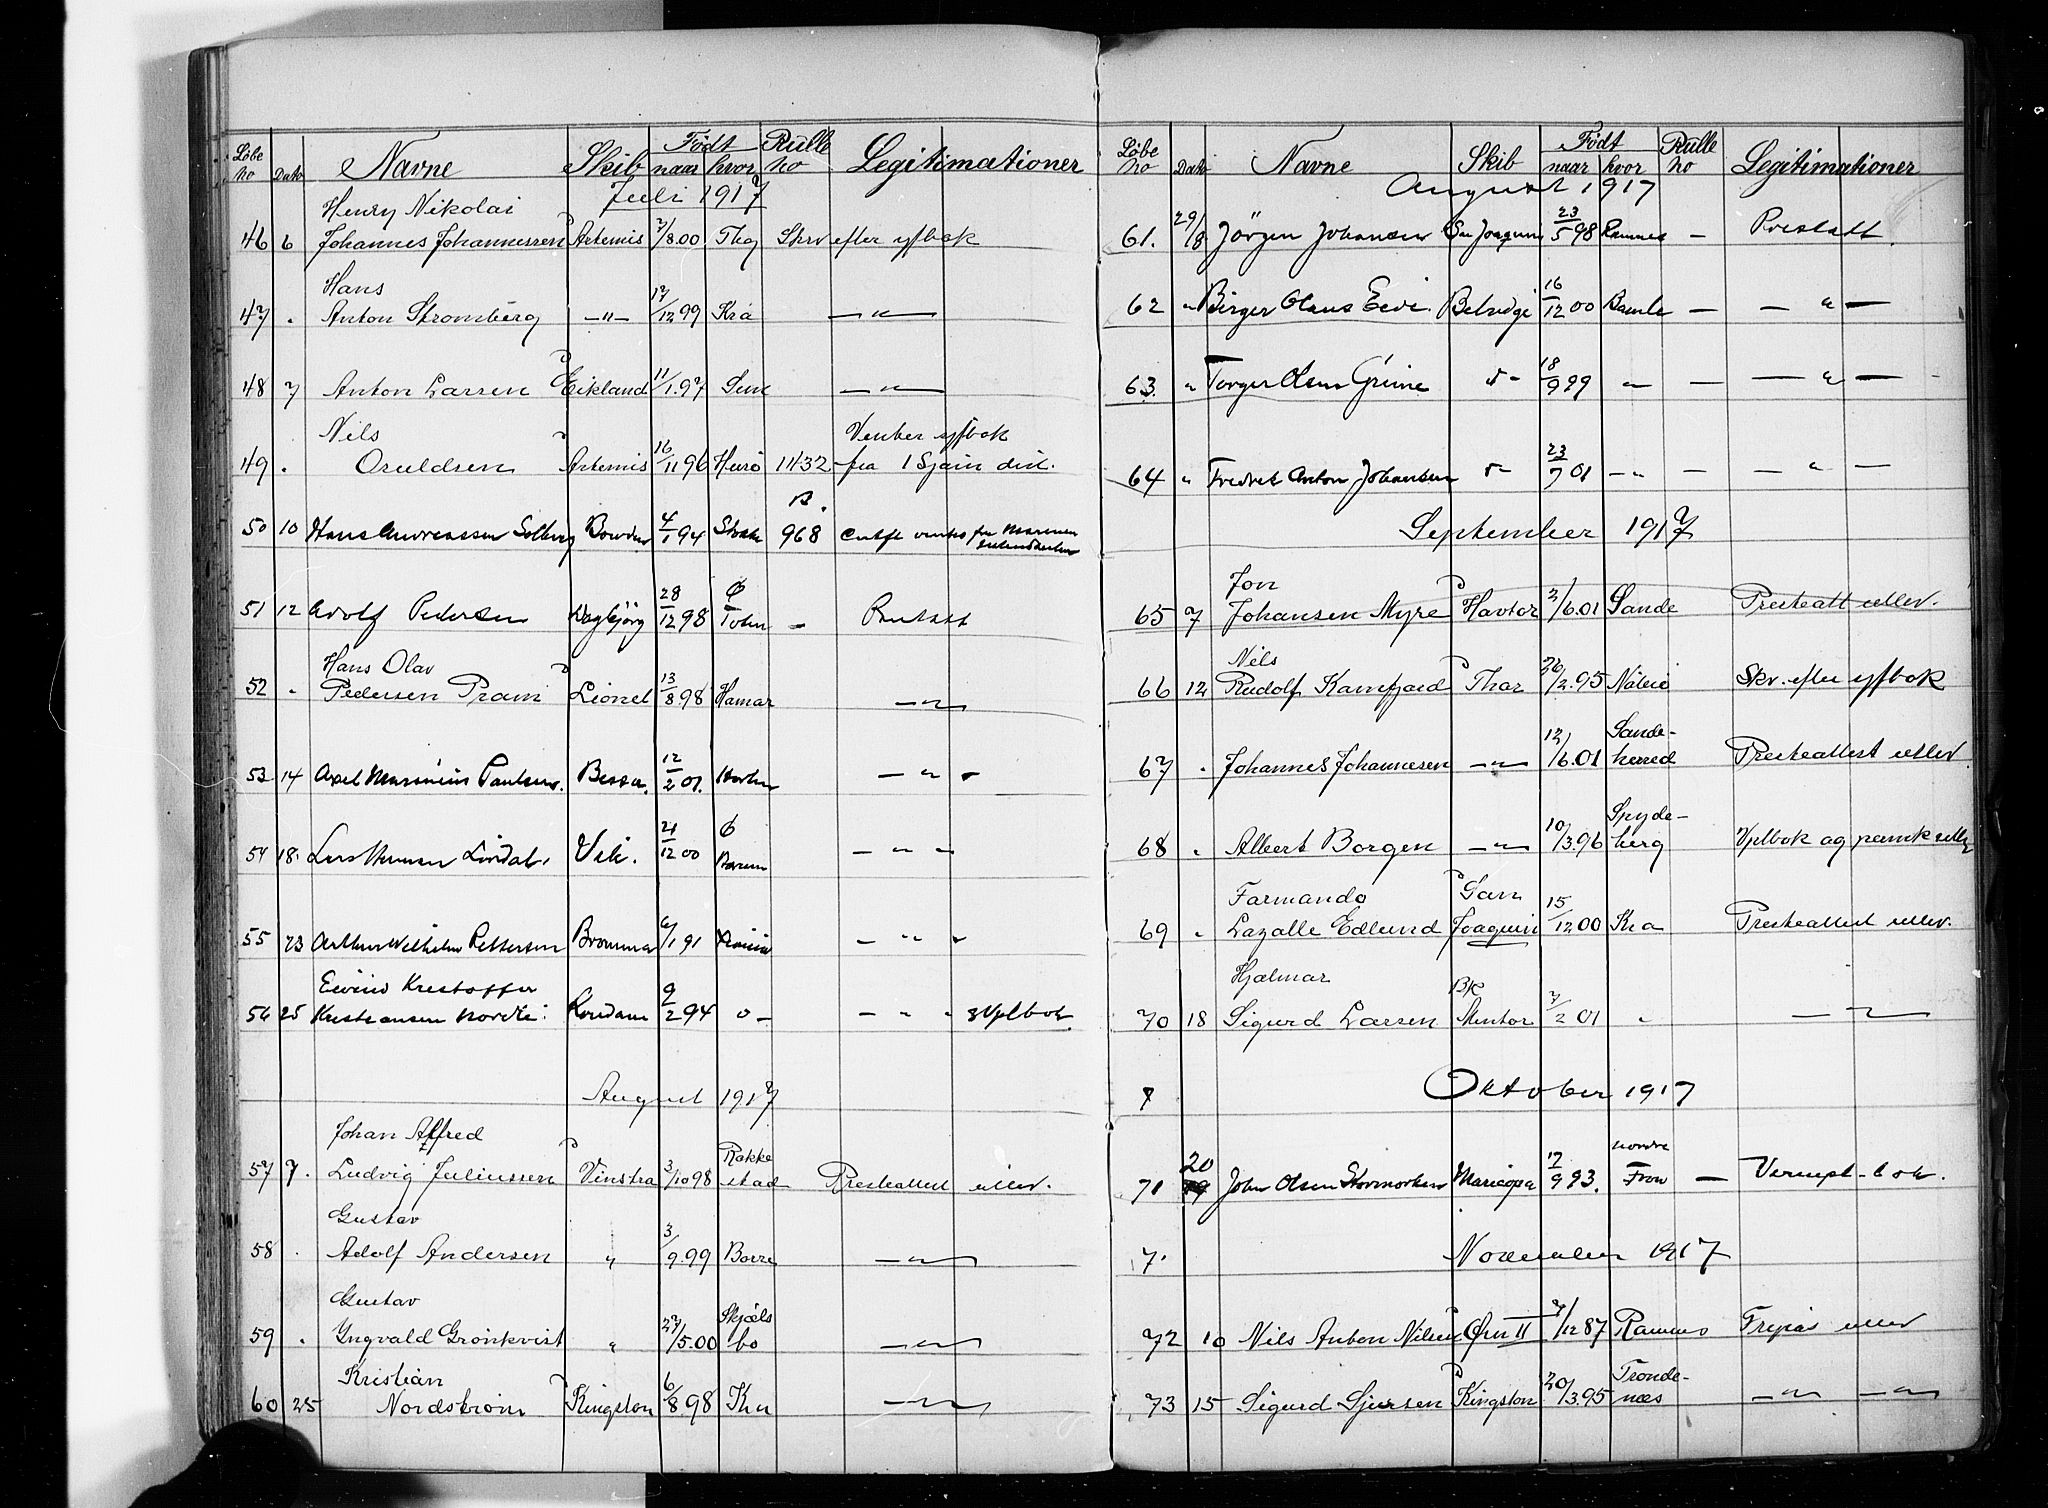 Løbe no Dato Navne Skib Født naar hvor Rulle no Legitimationer
Juli 1917
Henry Nikolai
46 6 Johannes Johannessen Artemis 7/8.00 Tbg Skrv efter yfbok
Hans
47 . Anton Stromberg —"— 17/12 99 Kra —"—
48 7 Anton Larsen Eikland 11/1.97 —"—
Nils Venter yfbok
49 . Osuldsen Artemis 16/11 96 11432 fra 1 Sjøin dist.
B.
50 10 Hans Andreassen Solberg 4/1 94 Stokke 968
51 12 Adolf Pedersen Dagbjörg 28/12 98 —
Hans Olav
52 . Pedersen Pram Lionel 13/8.98 Hamar —"—
53 14 Axel Marinius Paulsen. Bessa. 12/2 01. — " —
54 18. Vik. 21/12 00 — " —
55 23 Arthur Wilhelm Pettersen Bromma 6/1 91 — " —
Eivind Kristoffer
56 25 Kristiansen 9/2 94 — " "
August 1917
Johan Alfred Rakke
57 7. Ludvig Juliussen Vinstra 3/10 98 stad Presteattest utlev.
Gustav
58 . Adolf Andersen " 3/9.99 Borre —"—
Gustav Skjæls
59 . Yngvald Grönkvist " 27/5.00 bo —"—
Kristian
60 25 Nordström Kingston 6/8.98 Kra —"—
Løbe no Dato Navne Skib Født naar hvor Rulle no Legitimationer
August 1917
61. 29/8 Jörgen Johansen Sn Joaquin 23/5 98 Ramnes — Prestatt.
62 " Birger Olaus Belridge 16/12 00 Bamle — — " —
63. " Torger Olsen Grine 18/9 99 " — — " —
64 " Fredrik Anton Johansen 23/7 01 — " — — " —
September 1917
Jon
65 7 Johansen Myre Havtor 2/6.01 Sande Presteatt utlev.
Nils
66 12 Rudolf Kamfjord Thor 26/2.95 Skv. efter yfbok
Sande-
67 . Johannes Johannesen —"— 12/6.01 herred Presteattest utlev.
Spyde-
68 . Albert Borgen —"— 10/3.96 berg
Farmando San
69 . Lazalle Edlund Joaquin 15/12 00 Kra Presteattest utlev.
Hjalmar Bk
70 18 Sigurd Larsen Mentor 7/2 01 " —"—
7 Oktober 1917
20 nordre
71 19 John Olsen Maricopa 17/9 93. Fron — Vernepl-bok.
7. November 1917
72 10 Nils Anton Nilsen Örn II 7/12 87 Ramnes Fripas utlev
Tronde-
73 15 Sigurd Sjursen Kingston 20/3.95 næs —"— —"—